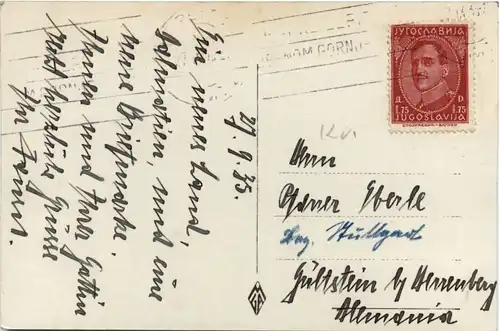 27.9.35.
Ein neues Land,
Dalmatien, und eine
neue Briefmarke.
Ihnen und Ihrer Gattin
recht herzliche Grüsse
Ihr
ЈУГОСЛАВИЈА
Д. D
1.75 1.75
JUGOSLAVIJA
NOM GORNJ
Kr.
Herrn
Pfarrer Eberle
Bez. Stuttgart
Gültstein b/ Herrenberg
Alemania